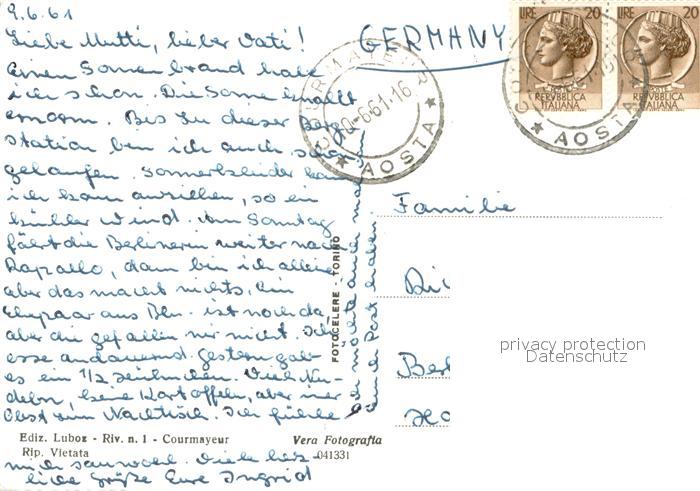 9.6.61
Liebe Mutti, lieber Vati!
Einen Sonnenbrand habe
ich schon. Die Sonne knallt
enorm. Bis zu dieser Berg-
station bin ich auch schon
gelaufen. Sommerkleider kann
ich kaum anziehen, so ein
kühler Wind. Am Sonntag
fährt die Berlinerin weiter nach
Rapallo, dann bin ich allein
aber das macht nichts. Ein
Ehepaar aus Bln. ist noch da
aber die gefallen mir nicht. Ich
esse andauernd. Gestern gab
es ein 1/2 Hühnchen. Viel Nu-
deln, keine Kartoffeln, aber nur
Obst zum Nachtisch. Ich fühle
mich sauwohl. Viele herz-
liche Grüße Eure Ingrid
möchte auch mal
Post haben
Ediz. Luboz - Riv. n. 1 - Courmayeur
Rip. Vietata
Vera Fotografia
041331
FOTOCELERE - TORINO
GERMANY
COURMAYEUR
10-6-61-16
★ AOSTA ★
LIRE 20
POSTE
REPVBBLICA
ITALIANA
LIRE 20
POSTE
REPVBBLICA
ITALIANA
★ AOSTA ★
Familie
privacy protection
Datenschutz